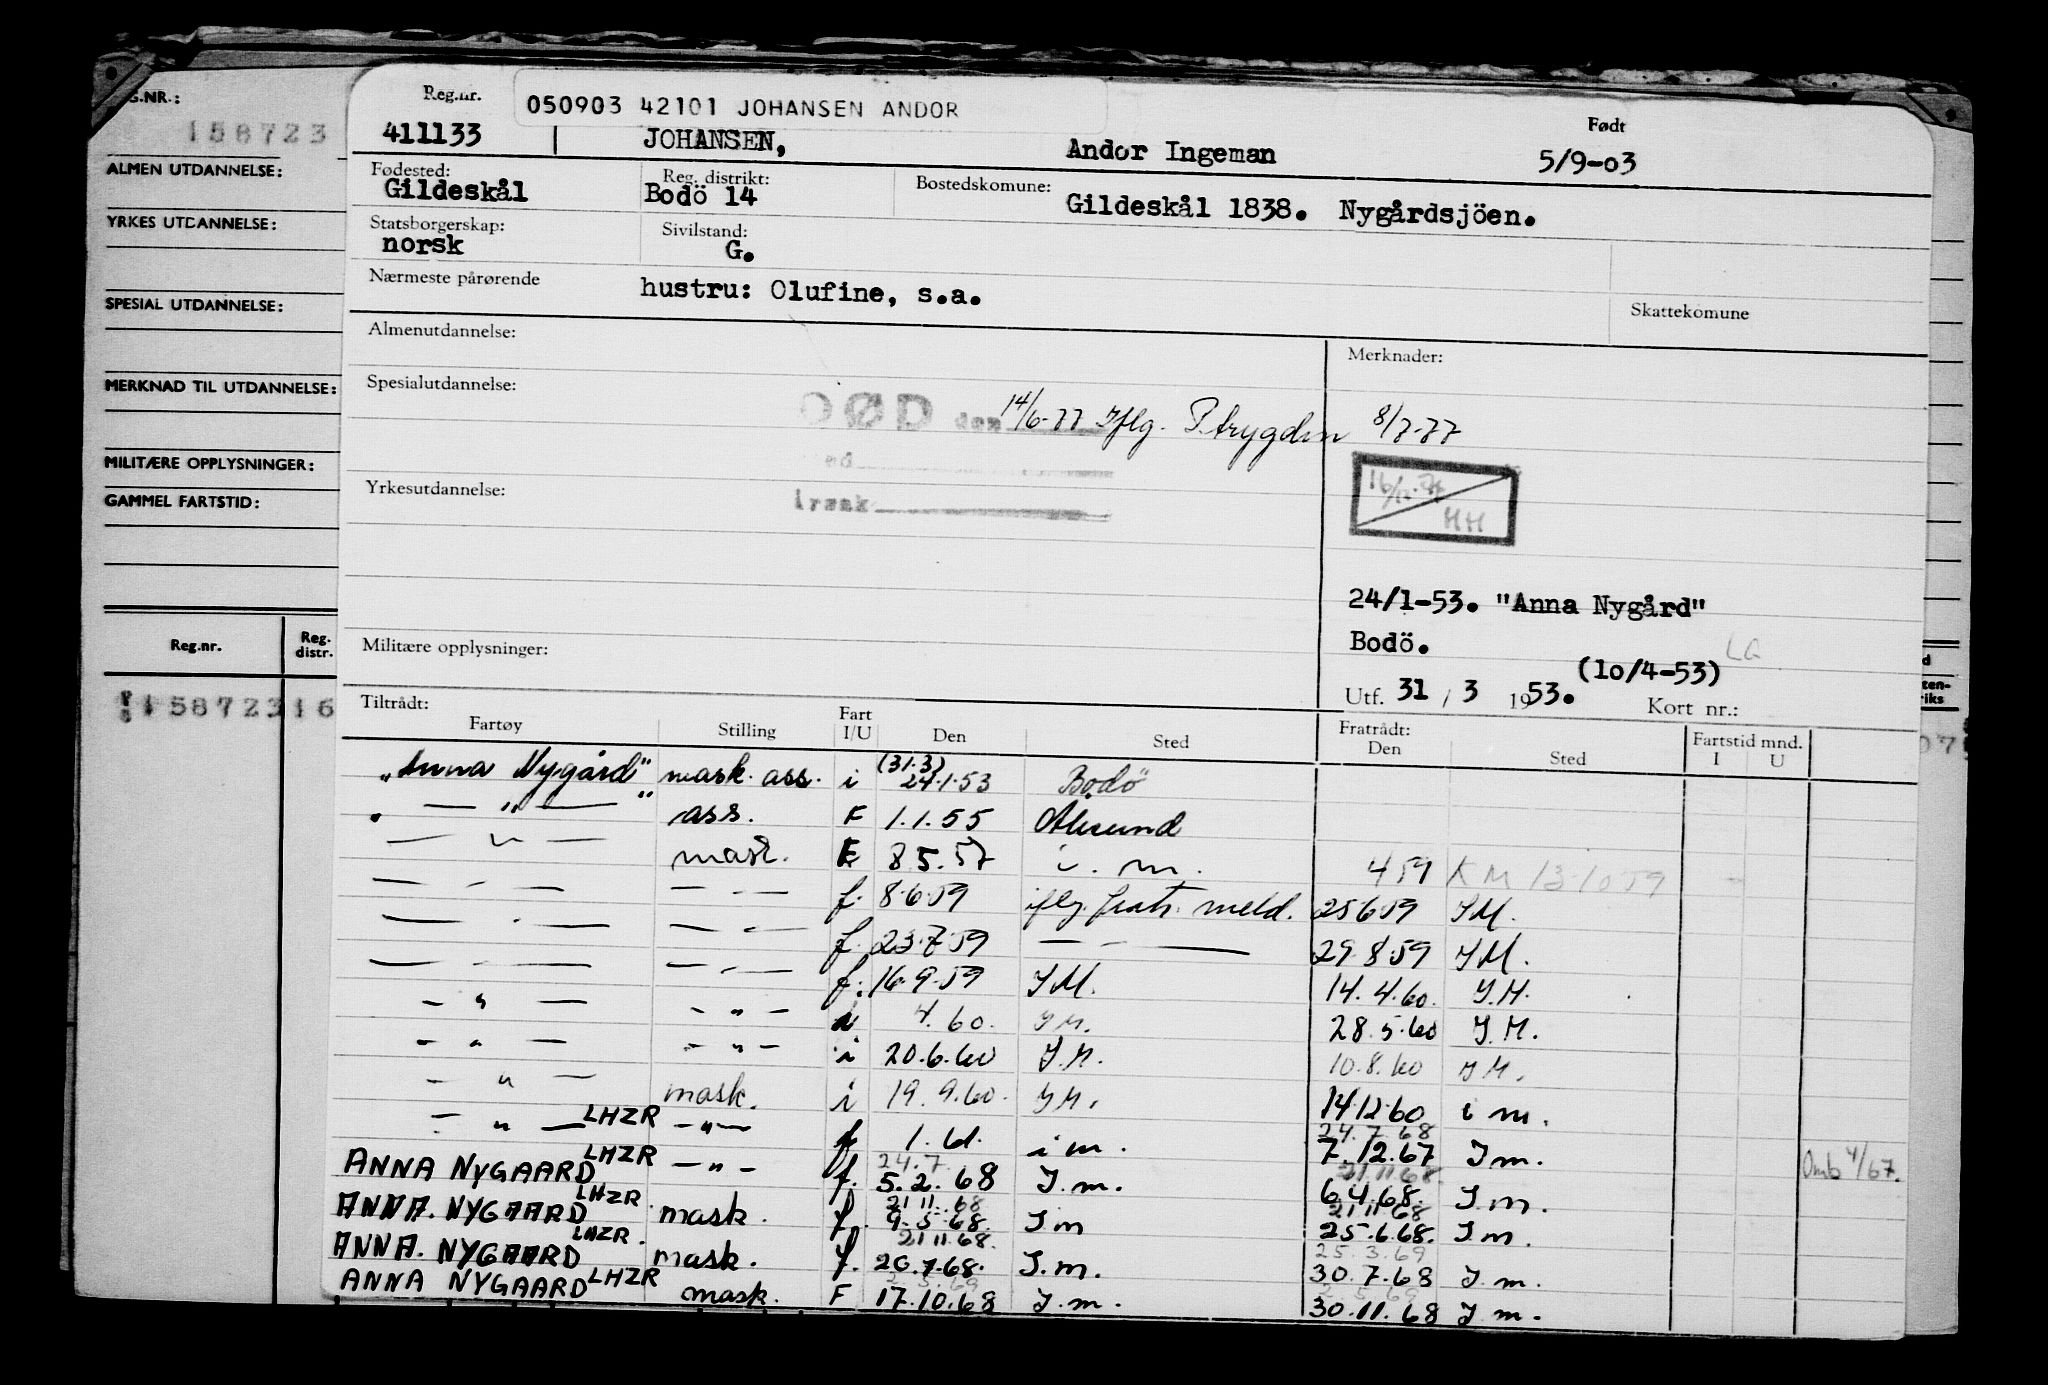 G.NR.:
158723
ALMEN UTDANNELSE:
YRKES UTDANNELSE:
SPESIAL UTDANNELSE:
MERKNAD TIL UTDANNELSE:
MILITÆRE OPPLYSNINGER:
GAMMEL FARTSTID:
Reg.nr. Reg. distr.
158723 16
Reg.nr. 050903 42101 JOHANSEN ANDOR Født
411133 JOHANSEN, Andor Ingeman 5/9-03
Fødested: Reg. distrikt: Bostedskomune:
Gildeskål Bodö 14 Gildeskål 1838. Nygårdsjöen.
Statsborgerskap: Sivilstand:
norsk G.
Nærmeste pårørende hustru: Olufine, s.a. Skattekomune
Almenutdannelse: Merknader:
Spesialutdannelse:
DØD den 14/6-77 Iflg. P.trygden 8/7-77
16/12.77 HH
Yrkesutdannelse: årsak
24/1-53. "Anna Nygård"
Bodö. LG
Militære opplysninger: (10/4-53)
Utf. 31 / 3 1953. Kort nr.:
Tiltrådt: Fratrådt: Fartstid mnd.
Fartøy Stilling Fart I/U Den Sted Den Sted I U
"Anna Nygård" mask. ass. i (31.3) 24.1.53 Bodö
— " — " ass. F 1.1.55 Ålesund
— " — mask. F 8.5.57 i. m. 4 59 KM 13.10.59
— - — — - — f. 8.6.59 iflg. fratr. meld. 25.6.59 I.M.
— - — — - — f. 23.7.59 — - — 29.8.59 I.M.
— - — — - — f. 16.9.59 I.M. 14.4.60. I.M.
— " — - " - i 4.60. I.M. 28.5.60 I.M.
— " — - " - i 20.6.60 I.M. 10.8.60 I.M.
— " — mask. i 19.9.60. I.M. 14.12.60 i m.
— " — LHZR — " — f 1. 61. i m. 24.7.68 7.12.67 I m. Omb 4/67.
ANNA NYGAARD LHZR — " — f. 24.7. 5.2.68 I.m. 21.11.68. 6.4.68. I.m.
ANNA. NYGAARD LHZR. mask. f. 21.11.68 9.5.68. I m 21.11.68 25.6.68. I.m.
ANNA. NYGAARD LHZR. mask. f. 21.11.68. 20.7.68. I.m. 25.3.69 30.7.68 I.m.
ANNA NYGAARD LHZR mask. F 17.10.68 I.m. 30.11.68 I.m.